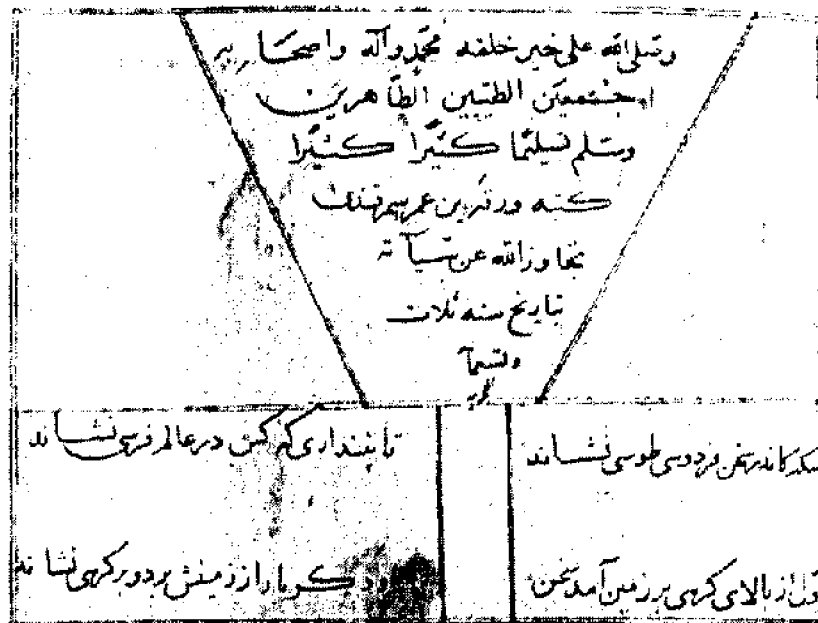 وصلى الله على خير خلقه محمد وآله واصحابه
اجمعين الطيبين الطاهرين
وسلم تسليما كثيرا كثيرا
كتبه ورقه بن عمر سمرقندى
تجاوز الله عن سيآته
بتاريخ سنه ثلاث
وتسعمآ
ئه
سکه کاندر سخن فردوسی طوسی نشاند تا نپنداری که کس در عالم فرسی نشاند
اول از بالای کرسی بر زمین آمد سخن دکر بار از زمینش برد و بر کرسی نشاند